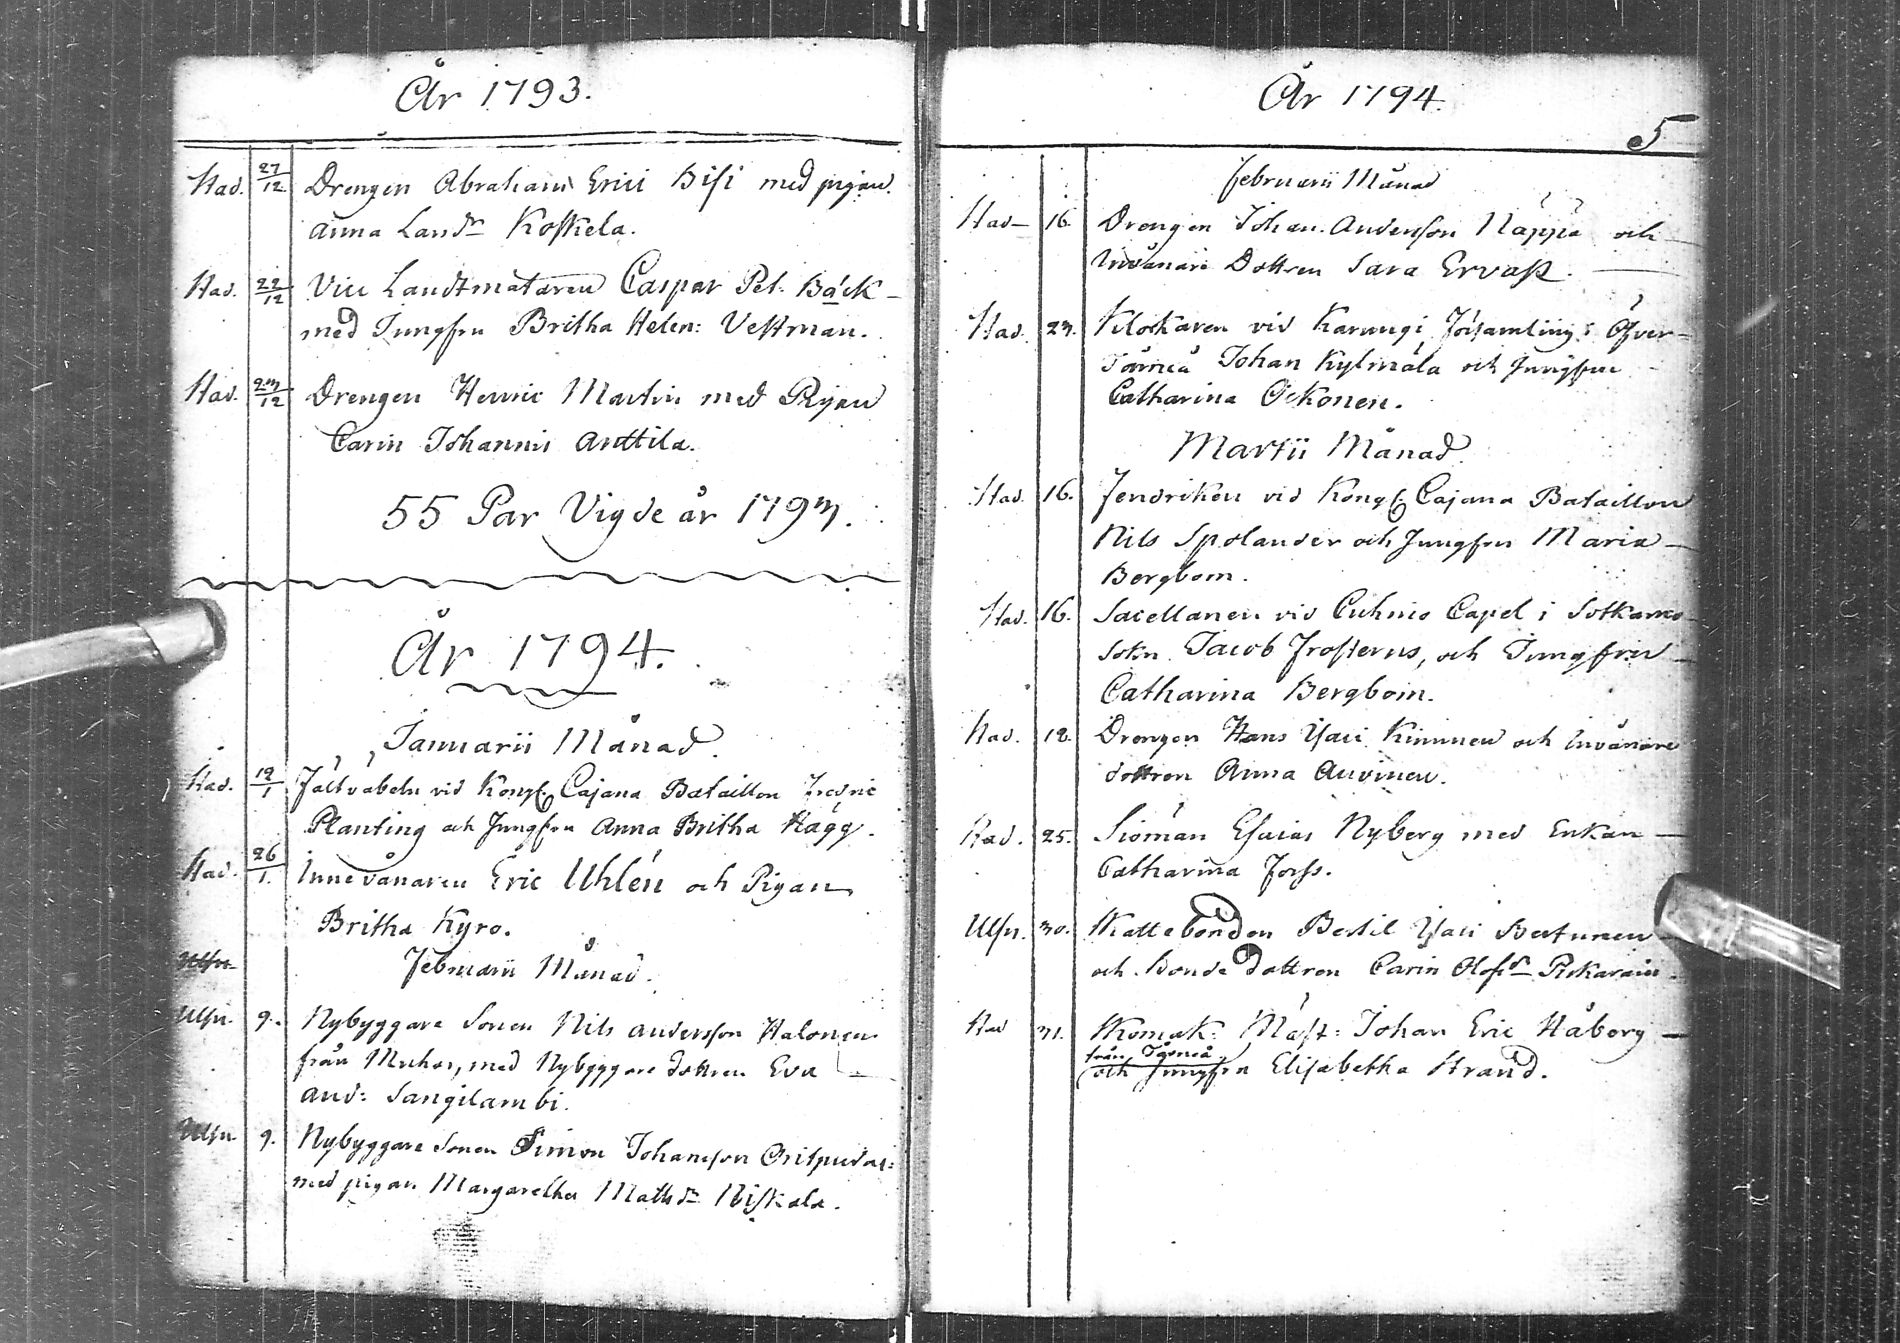 År 1793.
Stad. 27/12 Drengen Abraham Erici Sisi med pigan
Anna Larsdr Koskela.
Stad. 22/12 Vice Landtmätaren Caspar Pet. Bäck
med Jungfru Britha Helen: Vestman.
Stad. 23/12 Drengen Henric Martin med Pigan
Carin Johannis Anttila.
55 Par Vigde år 1793.
År 1794.
Januarii Månad.
Stad. 19/1 Fältväbeln vid Kongl. Cajana Bataillon Fredric
Planting och Jungfru Anna Britha Hägg.
Stad. 26/1. Innevånaren Eric Uhlén och Pigan
Britha Kyro.
Februarii Månad.
Ulfn. 9. Nybyggare Sonen Nils Andersson Halonen
från Muhos, med Nybyggare dottren Eva
And: Sangilambi.
Ulfn. 9. Nybyggare Sonen Simon Johansson
med pigan Margaretha Mattsdr Niskala.
År 1794.
5
Februarii Månad
Stad 16. Drengen Johan Andersson Näppä och
Invånare Dottren Sara Ervast.
Stad. 23. Klockaren vid Karungi Församling i Öfver-
Torneå Johan Kylmälä och Jungfru
Catharina Ockonen.
Martii Månad.
Stad. 16. Fendriken vid Kongl. Cajana Bataillon
Nils Spolander och Jungfru Maria
Bergbom.
Stad. 16. Sacellanen vid Cuhmo Capel i Sotkamo
Sokn Jacob Frosterus, och Jungfru
Catharina Bergbom.
Stad. 18. Drengen Hans Isaci Kinnunen och Invånare
dottren Anna Auvinen.
Stad. 25. Siöman Esaias Nyberg med Enkan
Catharina Forss.
Ulfn. 30. Skattebonden Bertil Isaci
och Bonde dottren Carin Olofsdr
Stad 31. Skomak: Mäst: Johan Eric Håberg
från Torneå
och Jungfru Elisabetha Strand.